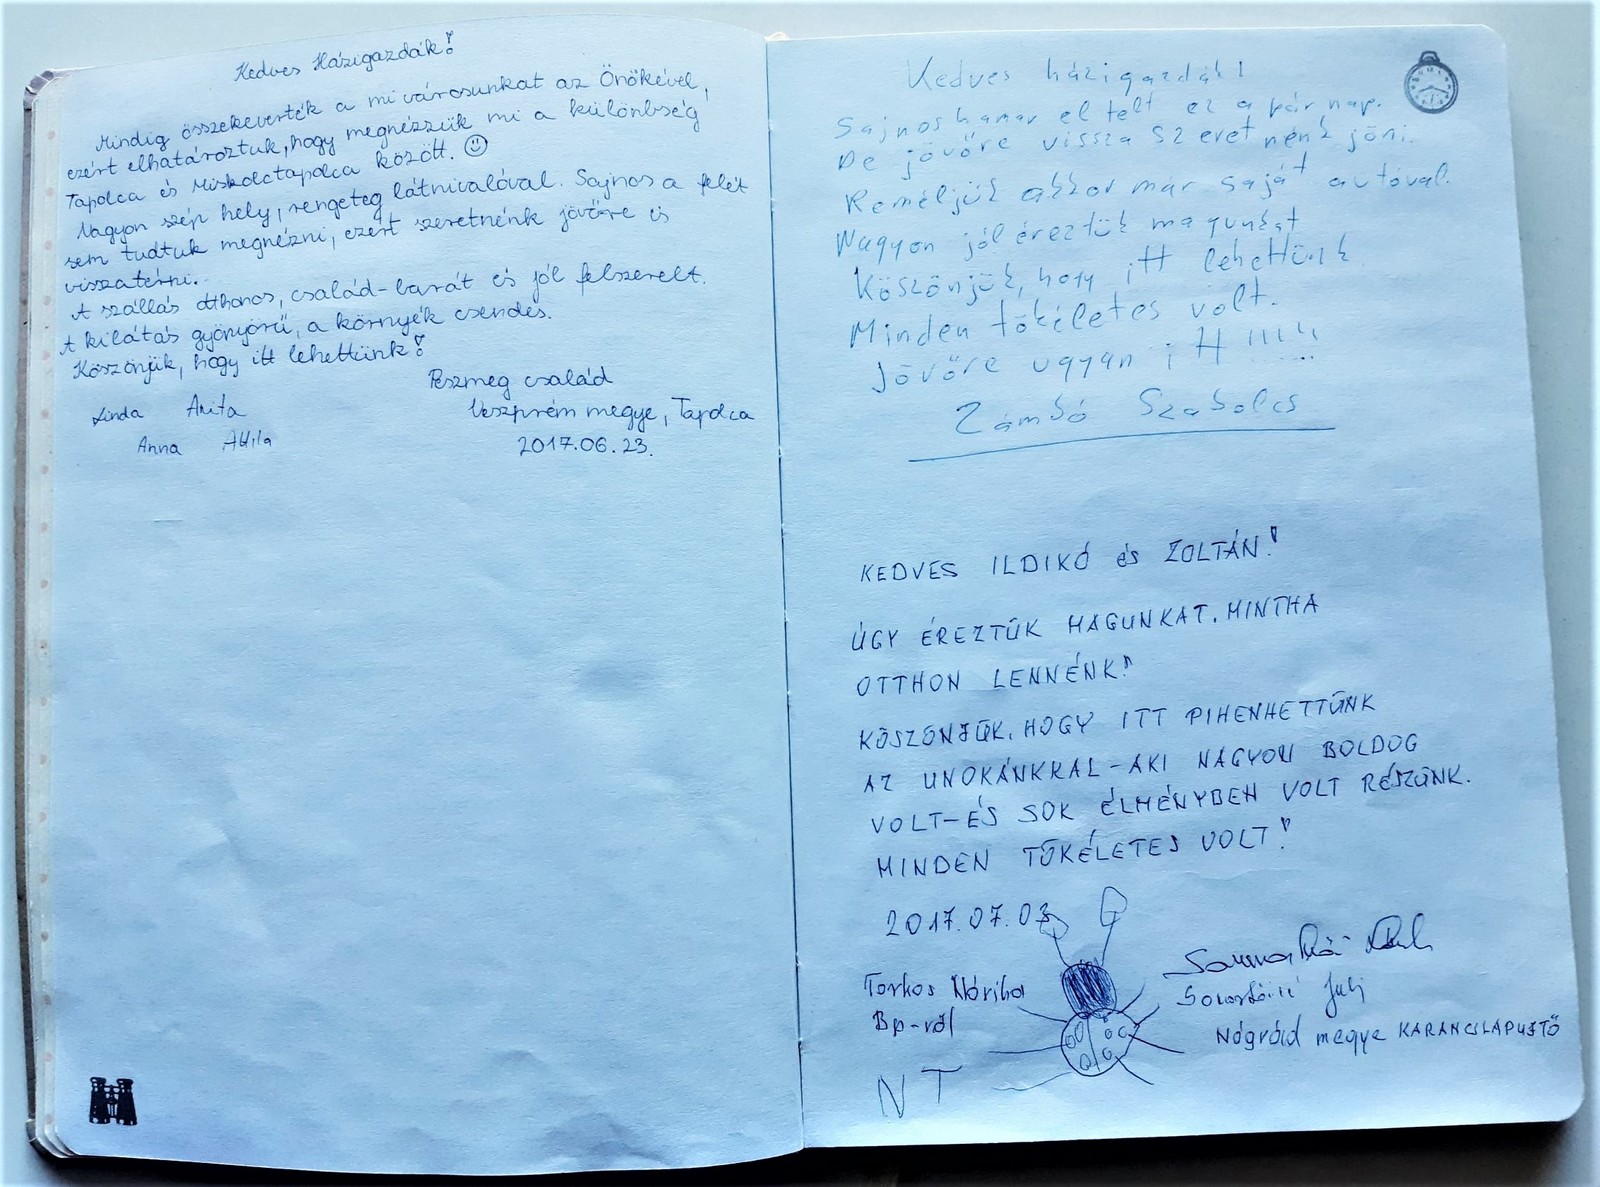 Kedves Házigazdák!
Mindig összekeverték a mi városunkat az Önökével,
ezért elhatároztuk, hogy megnézzük mi a különbség
Tapolca és Miskolctapolca között. ☺
Nagyon szép hely, rengeteg látnivalóval. Sajnos a felét
sem tudtuk megnézni, ezért szeretnénk jövőre is
visszatérni.
A szállás otthonos, család-barát és jól felszerelt.
A kilátás gyönyörű, a környék csendes.
Köszönjük, hogy itt lehettünk!
Peszmeg család
Linda Anita
Veszprém megye, Tapolca
Anna Attila
2017.06.23.
Kedves házigazdák!
Sajnos hamar el telt ez a pár nap.
De jövőre vissza szeretnénk jöni.
Reméljük akkor már saját autóval.
Nagyon jól éreztük magunkat
Köszönjük, hogy itt lehettünk
Minden tökéletes volt.
Jövőre ugyan itt !!!!!
Zámbó Szabolcs
KEDVES ILDIKÓ és ZOLTÁN!
ÚGY ÉREZTÜK MAGUNKAT, MINTHA
OTTHON LENNÉNK!
KÖSZÖNJÜK, HOGY ITT PIHENHETTÜNK
AZ UNOKÁNKRAL - AKI NAGYON BOLDOG
VOLT - ÉS SOK ÉLMÉNYBEN VOLT RÉSZÜNK.
MINDEN TÖKÉLETES VOLT!
2017.07.03
Torkos Nórika
Bp-ről
Nógrád megye KARANCSLAPUJTŐ
NT